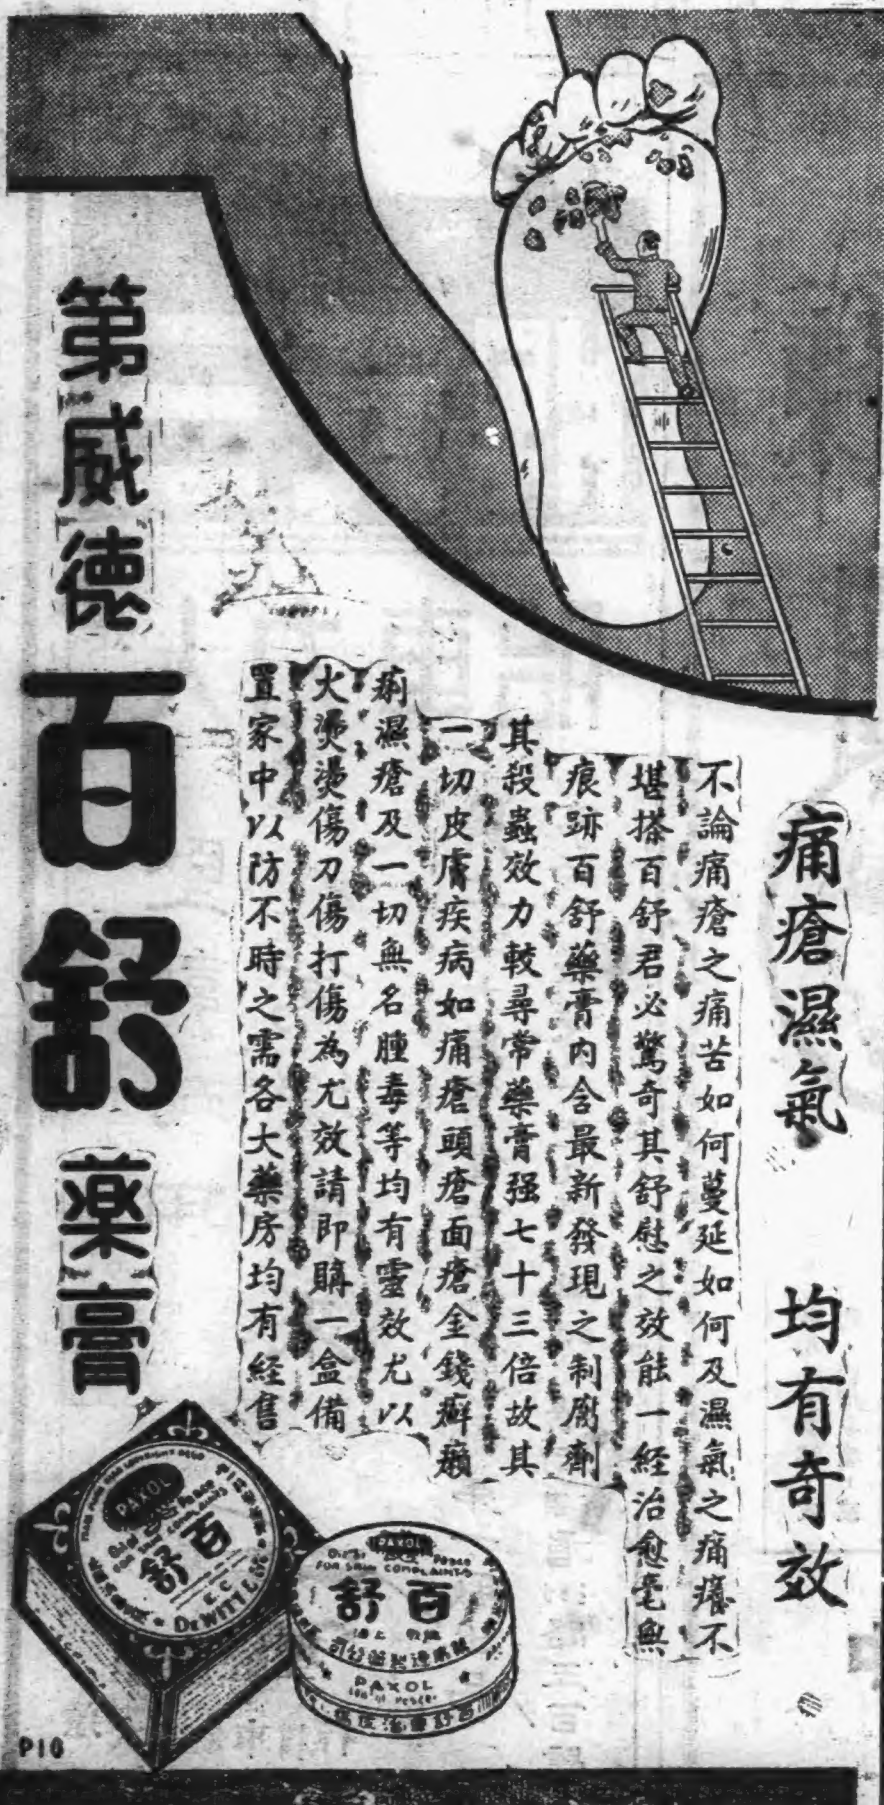 痛瘡濕氣　均有奇效
不論痛瘡之痛苦如何蔓延如何及濕氣之痛癢不
堪搽百舒君必驚奇其舒慰之效能一經治愈毫無
痕跡百舒藥膏內含最新發現之制菌劑
其殺蟲效力較尋常藥膏强七十三倍故其
一切皮膚疾病如痛瘡頭瘡面瘡金錢癬癩
痢濕瘡及一切無名腫毒等均有靈效尤以
火燙燙傷刀傷打傷為尤效請即購一盒備
置家中以防不時之需各大藥房均有經售
第威德
百舒
薬膏
PAXOL
百舒
E C
DeWITT & Co
PAXOL
FOR SKIN COMPLAINTS
百舒
PAXOL
P10